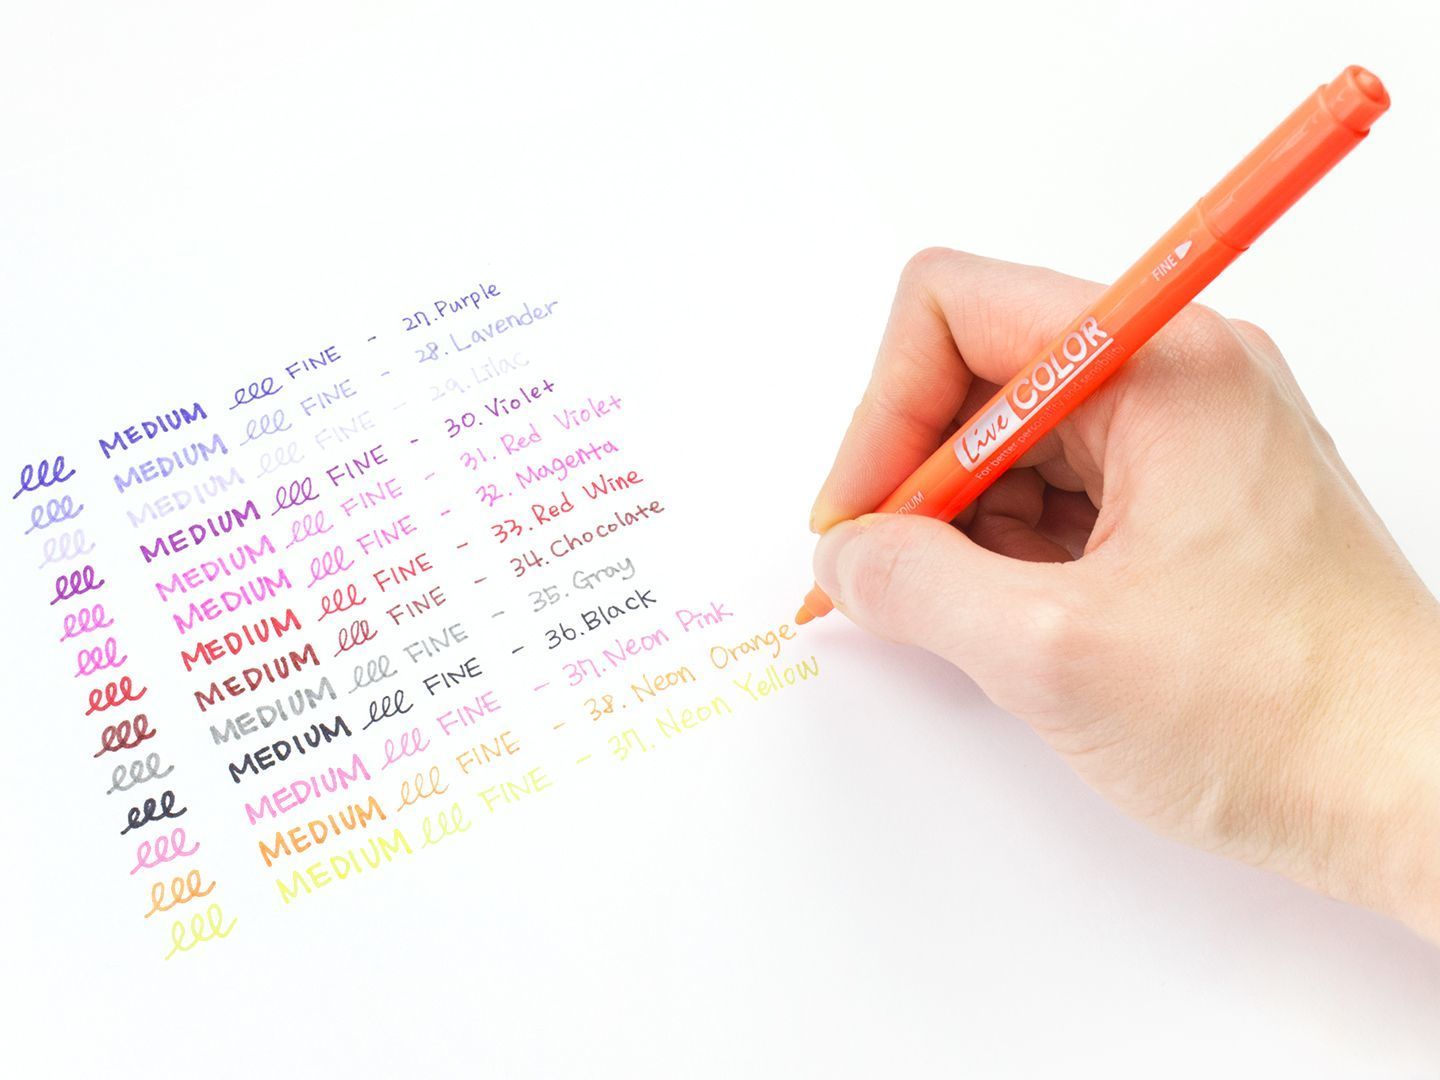 lll MEDIUM lll FINE - 27.Purple
lll MEDIUM lll FINE - 28.Lavender
lll MEDIUM lll FINE - 29.Lilac
lll MEDIUM lll FINE - 30.Violet
lll MEDIUM lll FINE - 31. Red Violet
lll MEDIUM lll FINE - 32. Magenta
lll MEDIUM lll FINE - 33.Red Wine
lll MEDIUM lll FINE - 34.Chocolate
lll MEDIUM lll FINE - 35.Gray
lll MEDIUM lll FINE - 36.Black
lll MEDIUM lll FINE - 37.Neon Pink
lll MEDIUM lll FINE - 38. Neon Orange
lll MEDIUM lll FINE - 37. Neon Yellow
FINE
Live COLOR
For better personality and sensibility